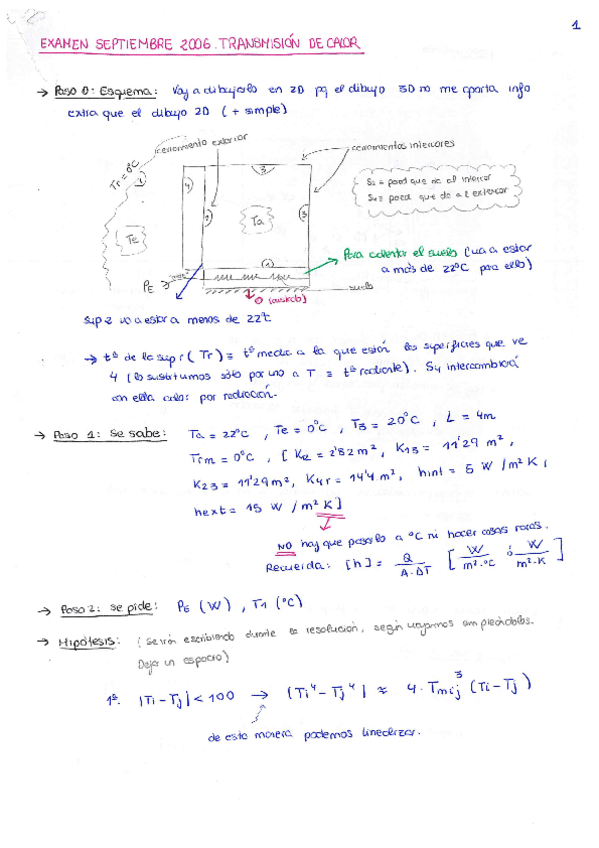 1
EXAMEN SEPTIEMBRE 2006. TRANSMISIÓN DE CALOR
→ Paso 0: Esquema: Voy a dibujarlo en 2D pq el dibujo 3D no me aporta info
extra que el dibujo 2D (+ simple)
cerramiento exterior
cerramientos interiores
Tr = 0°C
S2 = pared que da al interior
S4 = pared que da al exterior
Te
Ta
4
2
3
3
1
Para calentar el suelo (va a estar
a más de 22°C para ello)
PE
suelo
0 (aislado)
Sup 2 va a estar a menos de 22°C
→ tª de la sup r (Tr) ≡ tª media a la que están las superficies que ve
4 (lo sustituimos sólo por uno a T ≡ tª radiante). S4 intercambiará
con ella calor por radiación.
→ Paso 1: Se sabe: Ta = 22°C , Te = 0°C , T3 = 20°C , L = 4m
Trm = 0°C , [K12 = 2'82 m², K13 = 11'29 m²,
K23 = 11'29 m², K4r = 14'4 m², hint = 5 W/m²K,
hext = 15 W/m²K]
NO hay que pasarlo a °C ni hacer cosas raras.
Recuerda: [h] = Q / A·ΔT [W / m²·°C ó W / m²·K]
→ Paso 2: Se pide: PE (W) , T1 (°C)
→ Hipótesis: (Se irán escribiendo durante la resolución, según vayamos empleándolas.
Deja un espacio)
1ª. |Ti - Tj| < 100 → (Ti⁴ - Tj⁴) ≈ 4 · Tmij³ (Ti - Tj)
de esta manera podemos linealizar.